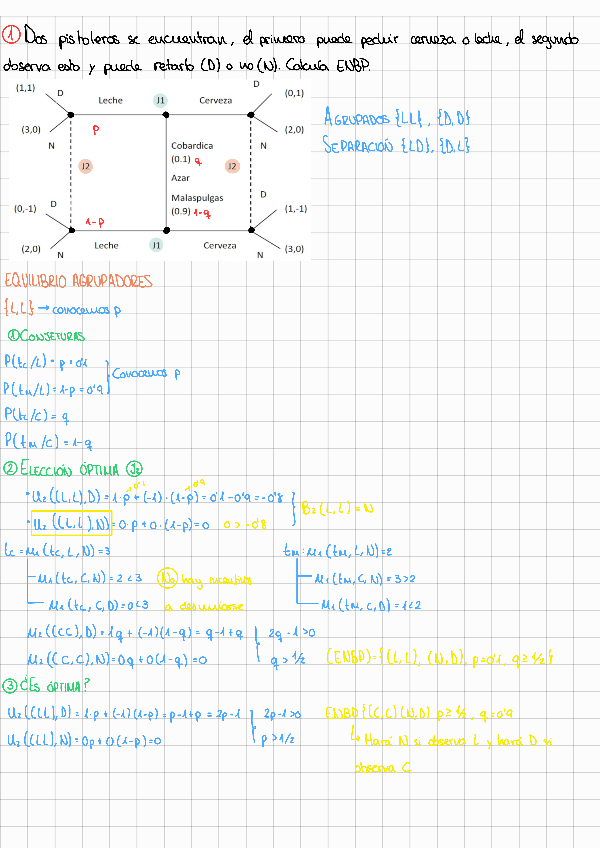 ① Dos pistoleros se encuentran, el primero puede pedir cerveza o leche, el segundo
observa esto y puede retarlo (D) o no (N). Calcula ENBP.
(1,1) D Leche J1 Cerveza D (0,1)
AGRUPADOS {LL}, {D,D}
(3,0) N p N (2,0)
SEPARACIÓN {LD}, {D,L}
Cobardica
(0.1) q
J2 Azar J2
Malaspulgas
(0.9) 1-q
(0,-1) D 1-p D (1,-1)
(2,0) N Leche J1 Cerveza N (3,0)
EQUILIBRIO AGRUPADORES
{L,L} → conocemos p
① CONJETURAS
P(tc/L) = p = 0'1
P(tm/L) = 1-p = 0'9
Conocemos p
P(tc/C) = q
P(tm/C) = 1-q
② ELECCIÓN ÓPTIMA J2
0'1 0'9
• U2((L,L),D) = 1·p + (-1)·(1-p) = 0'1 - 0'9 = -0'8
B2(L,L) = N
• U2((L,L),N) = 0·p + 0·(1-p) = 0 0 > -0'8
tc = M1(tc, L, N) = 3 tm: M1(tm, L, N) = 2
M1(tc, C, N) = 2 < 3 No hay incentivos M1(tm, C, N) = 3 > 2
M1(tc, C, D) = 0 < 3 a desviarse M1(tm, C, D) = 1 < 2
M2((CC), D) = 1q + (-1)(1-q) = q-1+q 2q-1>0
M2((C,C), N) = 0q + 0(1-q) = 0 q > 1/2 (ENBP) = {(L,L), (N,D), p=0'1, q ≥ 1/2}
③ ¿ES ÓPTIMA?
U2((LL),D) = 1·p + (-1)(1-p) = p-1+p = 2p-1 2p-1>0 ENBP {(C,C) (N,D) p ≥ 1/2, q = 0'9
U2((LL),N) = 0p + 0(1-p) = 0 p > 1/2 ↳ Hará N si observa L y hará D si
observa C